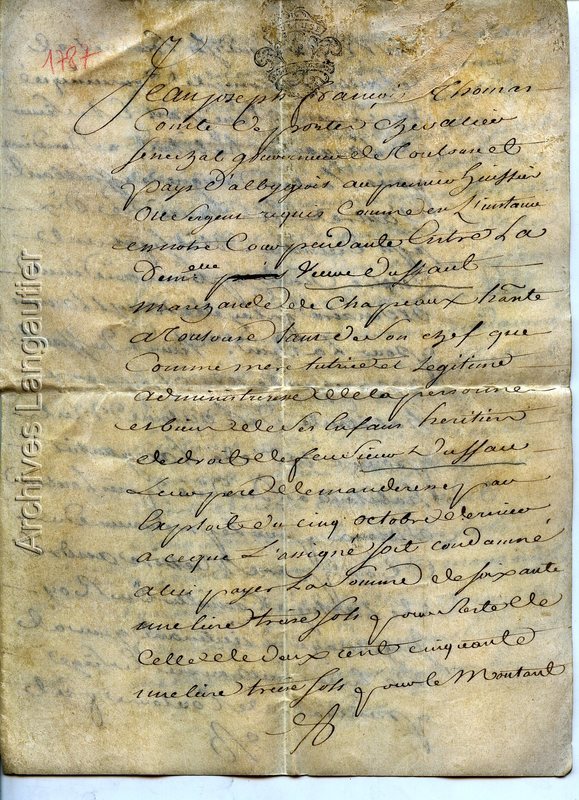 1787
Jean joseph françois Thomas
Comte De portes chevalier
senechal gouverneur de Toulouse et
pays d'albigeois au premier huissier
ou sergent requis comme en L'instance
en notre Cour pendante Entre La
Dem.elle veuve dussaut
marchande de Chapeaux hante
a Toulouse tant de son chef que
Comme mere tutrice et Legitime
administreresse de la personne
et biens de ses Enfans heritiers
de droit de feu sieur dussau
Leur pere demanderesse par
Exploit du cinq octobre dernier
a ce que L'assigné soit condamné
a lui payer La somme de soixante
une livre treise sols pour reste de
Celle de deux cent cinquante
une livre treise sols pour le montant
Archives Langautier